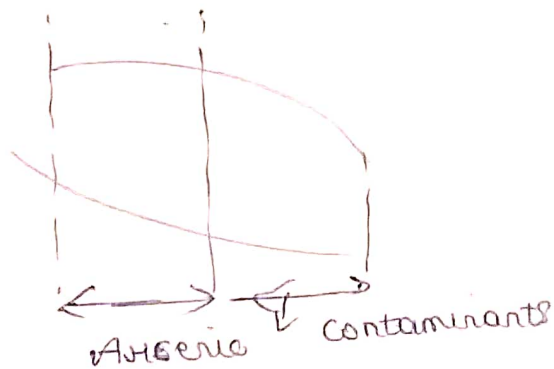 Arsenic
Contaminants